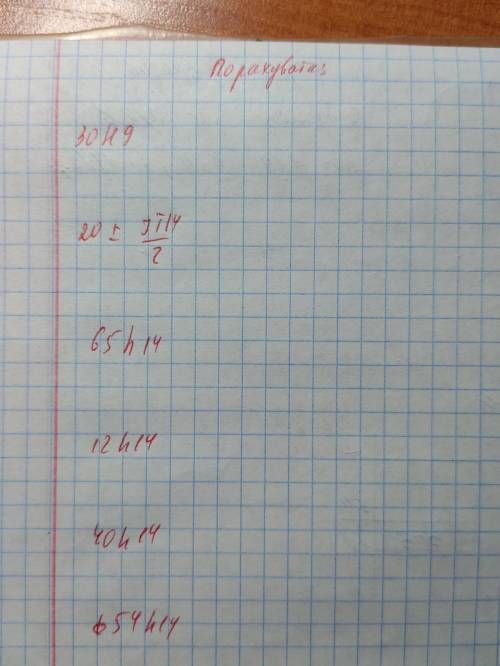 Порахувати:
30H9
20 ± IT14/2
65h14
12h14
40h14
ϕ54h14